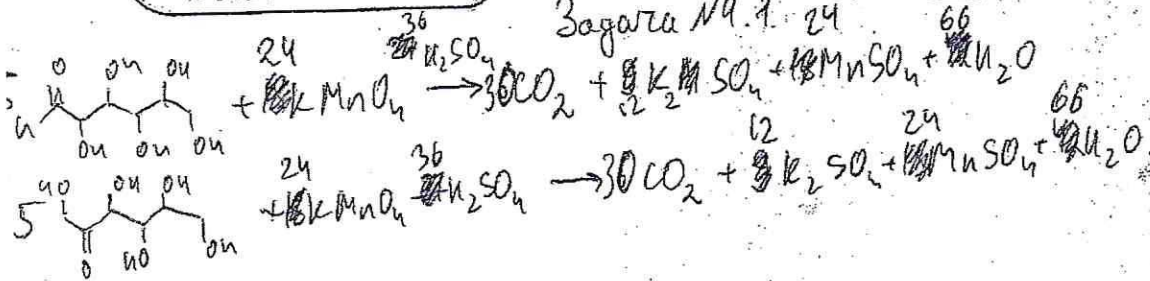 Задача №9.1.
5 24 KMnO₄ 36 H₂SO₄ → 30CO₂ + 12 K₂SO₄ + 24 MnSO₄ + 66 H₂O
5 + 24 KMnO₄ 36 H₂SO₄ → 30CO₂ + 12 K₂SO₄ + 24 MnSO₄ + 66 H₂O